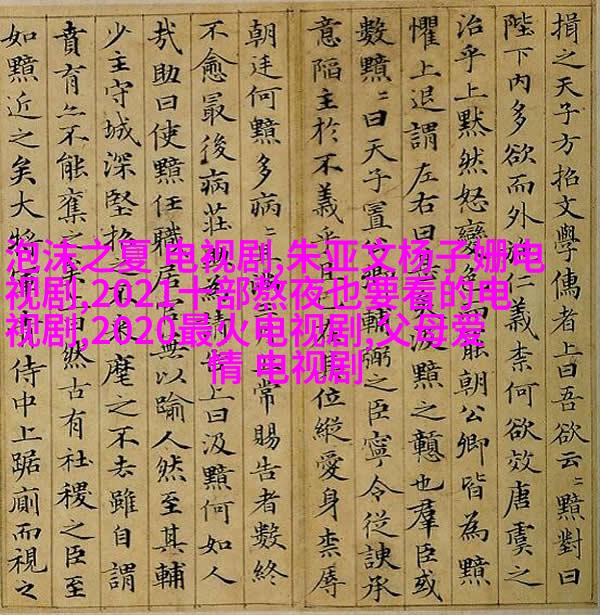 揖之天子方招文學儒者上曰吾欲云〻黯對曰
陛下內多欲而外施仁義柰何欲效唐虞之
治乎上黙然怒變色而罷朝公卿皆為黯
懼上退謂左右曰甚汲黯之戇也羣臣或
數黯〻曰天子置公輔弼之臣寧令從諛承
意陷主於不義乎且在其位縱愛身柰辱
朝廷何黯多病〻上常賜告者數終
不愈最後病莊助為請告上曰汲黯何如人
哉助曰使黯任職居官無以踰人然至其輔
少主守城深堅招之不來麾之不去雖自謂
賁育亦不能奪之矣上曰然古有社稷之臣至
如黯近之矣大將軍青侍中上踞廁而視之
泡沫之夏 电视剧,朱亚文杨子姗电
视剧,2021十部熬夜也要看的电
视剧,2020最火电视剧,父母爱
情 电视剧